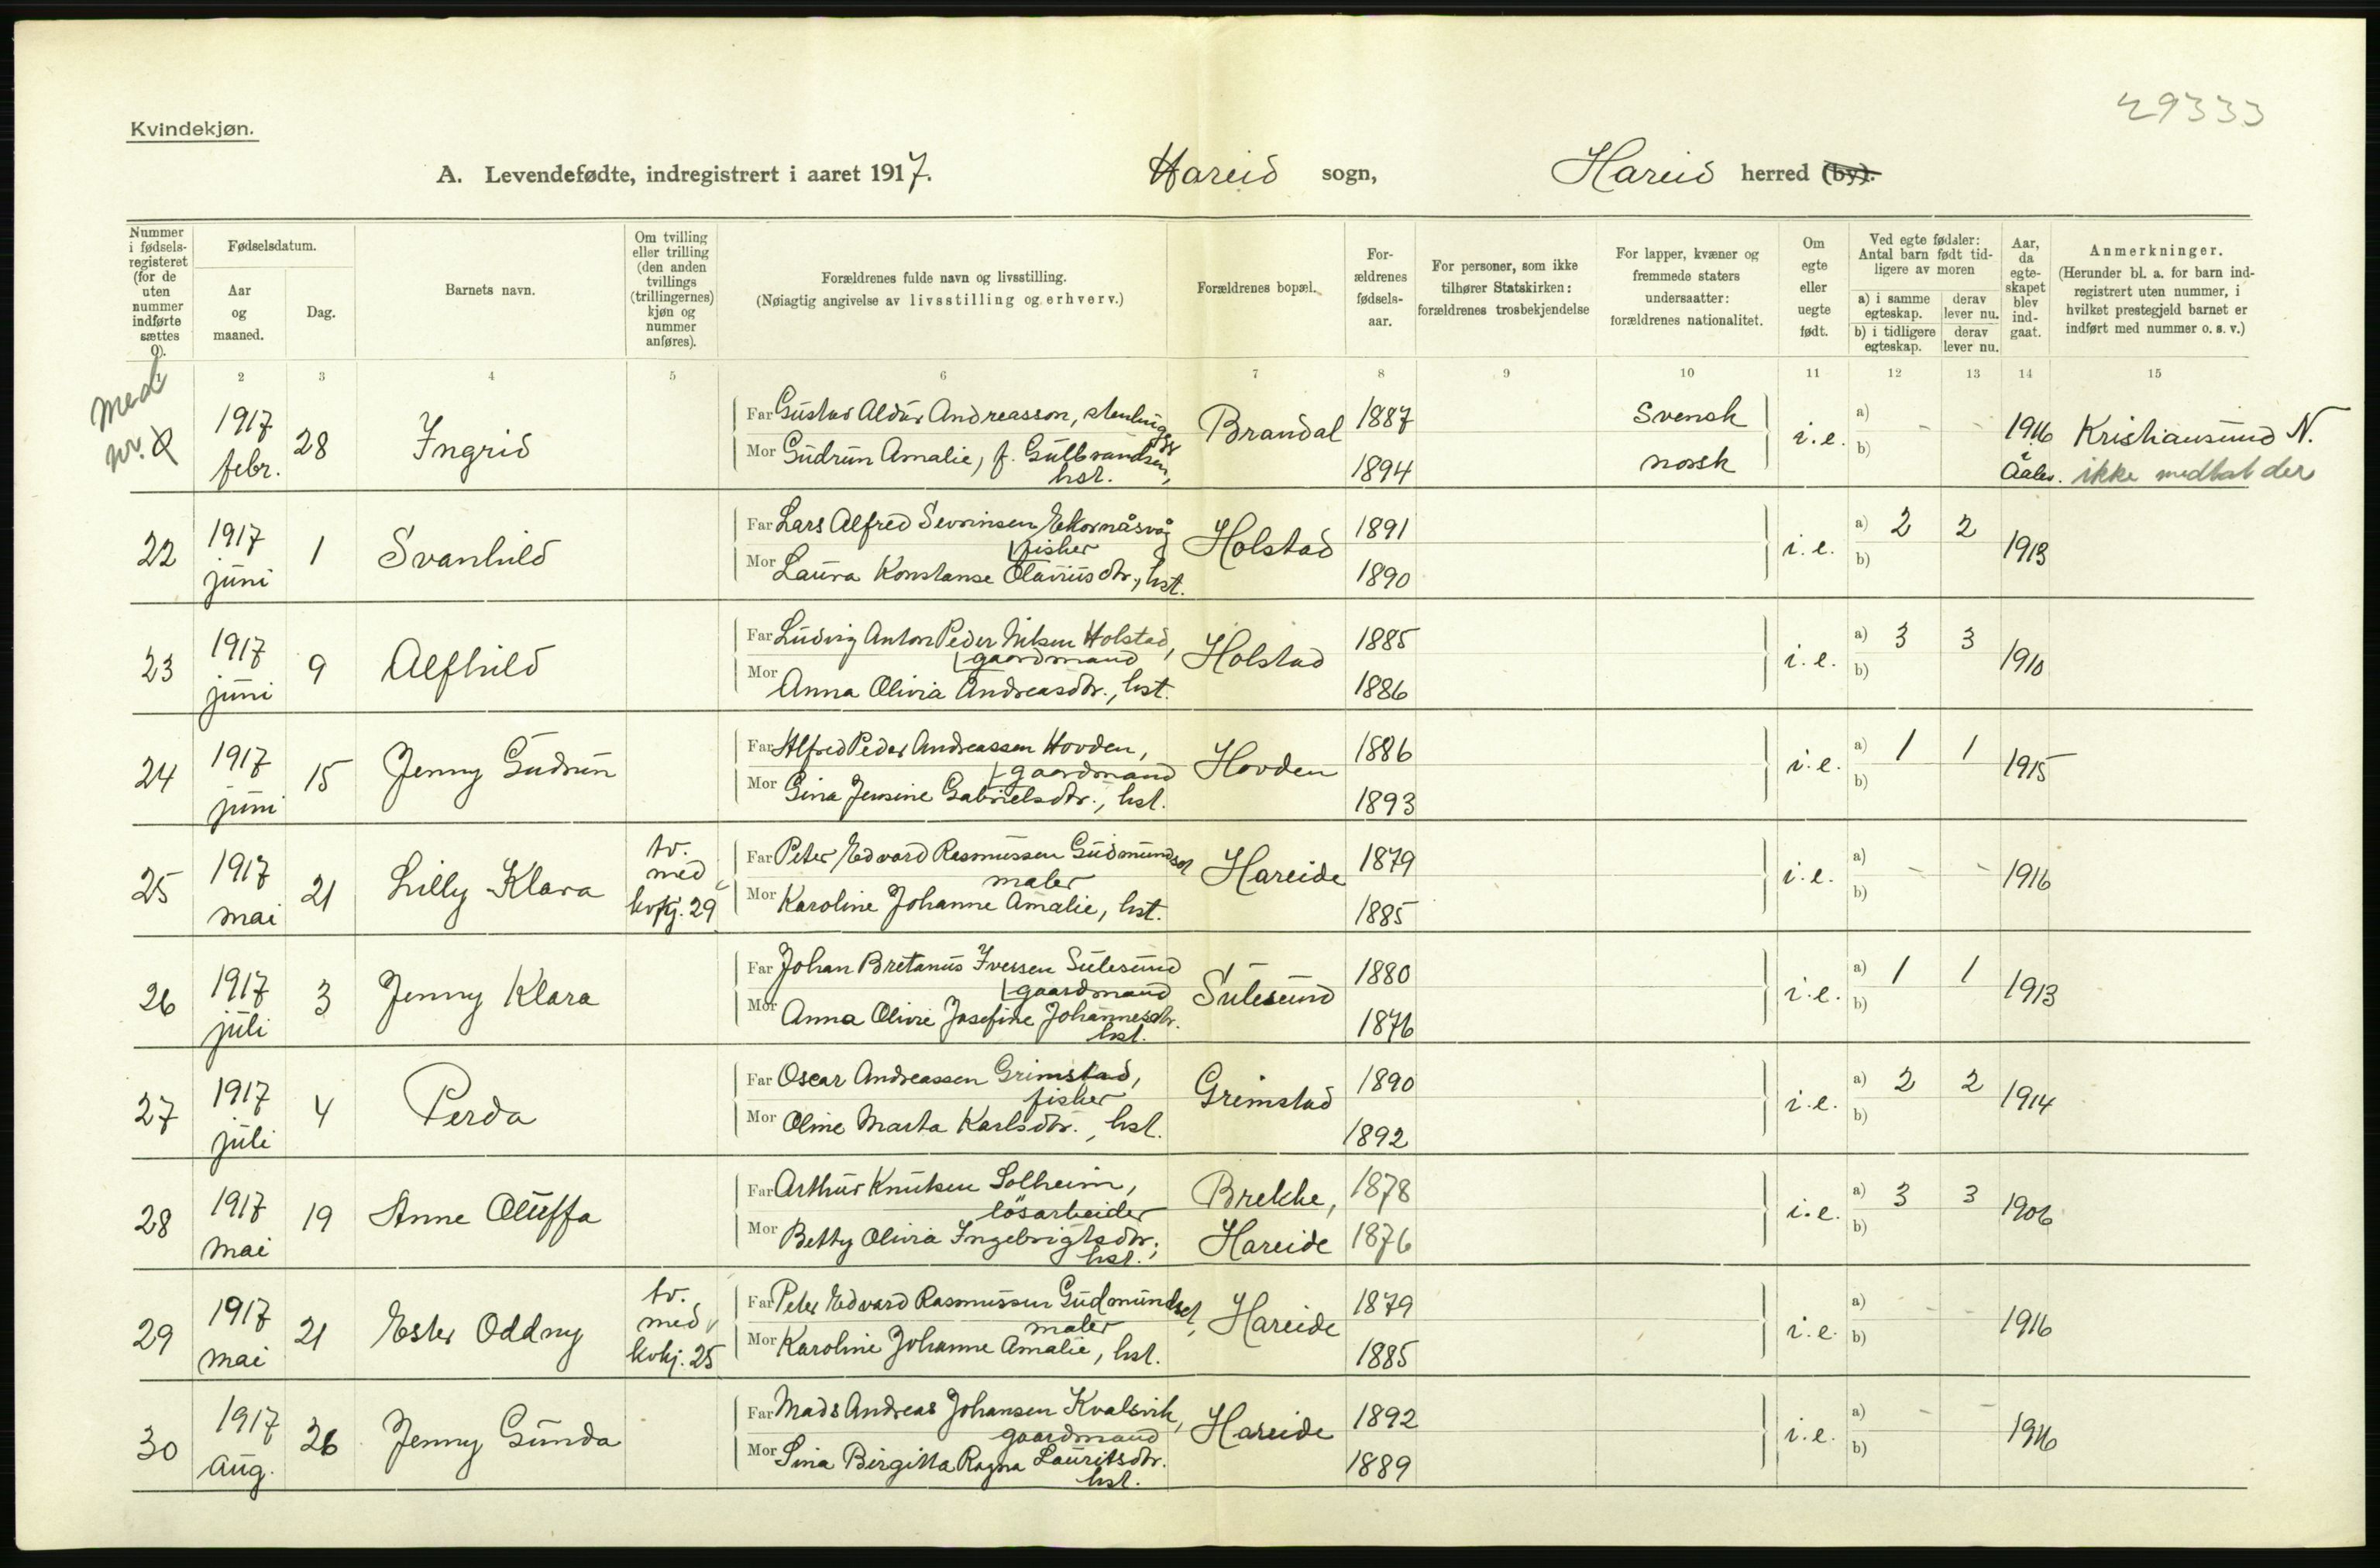 29333
Kvindekjøn.
A. Levendefødte, indregistrert i aaret 1917. Hareid sogn, Hareid herred (by).
Nummer i fødsels-registeret (for de uten nummer indførte sættes 0).
Fødselsdatum.
Aar og maaned.
Dag.
Barnets navn.
Om tvilling eller trilling (den anden tvillings (trillingernes) kjøn og nummer anføres).
Forældrenes fulde navn og livsstilling.
(Nøiagtig angivelse av livsstilling og erhverv.)
Forældrenes bopæl.
For-ældrenes fødsels-aar.
For personer, som ikke tilhører Statskirken: forældrenes trosbekjendelse
For lapper, kvæner og fremmede staters undersaatter: forældrenes nationalitet.
Om egte eller uegte født.
Ved egte fødsler: Antal barn født tid-ligere av moren
a) i samme egteskap. derav lever nu.
b) i tidligere egteskap. derav lever nu.
Aar, da egte-skapet blev ind-gaat.
Anmerkninger.
(Herunder bl. a. for barn ind-registrert uten nummer, i hvilket prestegjeld barnet er indført med nummer o. s. v.)
1 2 3 4 5 6 7 8 9 10 11 12 13 14 15
Med nr.
1917 febr. 28 Ingrid
Far Gustav Aldur Andreasson, stenhugger
Mor Gudrun Amalie, f. Gulbrandsen, hst.
Brandal 1887 1894 Svensk norsk i.e. a) - - b) 1916 Aales. Kristiansund N. ikke medtat der
22 1917 juni 1 Svanhild
Far Lars Alfred Sevrinsen Ekornåsvåg fisker
Mor Laura Konstanse Olaviusdtr., hst.
Holstad 1891 1890 i.e. a) 2 2 b) 1913
23 1917 juni 9 Alfhild
Far Ludvig Anton Peder Nilsen Holstad, gaardmand
Mor Anna Olivia Andreasdtr., hst.
Holstad 1885 1886 i.e. a) 3 3 b) 1910
24 1917 juni 15 Jenny Gudrun
Far Alfred Peder Andreassen Hovden, gaardmand
Mor Gina Jensine Gabrielsdtr., hst.
Hovden 1886 1893 i.e. a) 1 1 b) 1915
25 1917 mai 21 Lilly Klara tv. med kvkj. 29
Far Peter Edvard Rasmussen Gudmundset maler
Mor Karoline Johanne Amalie, hst.
Hareide 1879 1885 i.e. a) - - b) 1916
26 1917 juli 3 Jenny Klara
Far Johan Bretanus Iversen Sulesund gaardmand
Mor Anna Olivie Josefine Johannesdtr. hst.
Sulesund 1880 1876 i.e. a) 1 1 b) 1913
27 1917 juli 4 Perda
Far Oscar Andreassen Grimstad, fisker
Mor Oline Marta Karlsdtr., hst.
Grimstad 1890 1892 i.e. a) 2 2 b) 1914
28 1917 mai 19 Anne Oluffa
Far Arthur Knutsen Solheim, løsarbeider
Mor Betty Olivia Ingebrigtsdtr., hst.
Brekke, Hareide 1878 1876 i.e. a) 3 3 b) 1906
29 1917 mai 21 Ester Oddny tv. med kvkj. 25
Far Peter Edvard Rasmussen Gudmundset, maler
Mor Karoline Johanne Amalie, hst.
Hareide 1879 1885 i.e. a) - - b) 1916
30 1917 aug. 26 Jenny Gunda
Far Mads Andreas Johansen Kvalsvik, gaardmand
Mor Sina Birgitta Ragna Lauritsdtr. hst.
Hareide 1892 1889 i.e. a) - - b) 1916